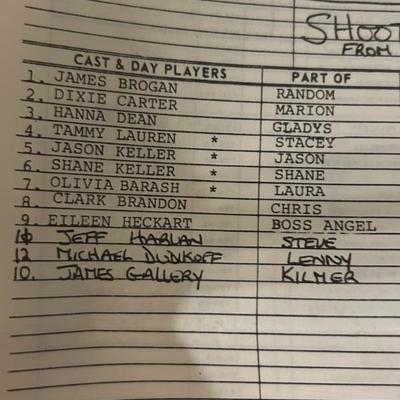 SHOOT
FROM
CAST & DAY PLAYERS PART OF
1. JAMES BROGAN RANDOM
2. DIXIE CARTER MARION
3. HANNA DEAN GLADYS
4. TAMMY LAUREN * STACEY
5. JASON KELLER * JASON
6. SHANE KELLER * SHANE
7. OLIVIA BARASH * LAURA
8. CLARK BRANDON CHRIS
9 EILEEN HECKART BOSS ANGEL
10 JEFF HARLAN STEVE
12 MICHAEL DUDIKOFF LENNY
10. JAMES GALLERY KILMER